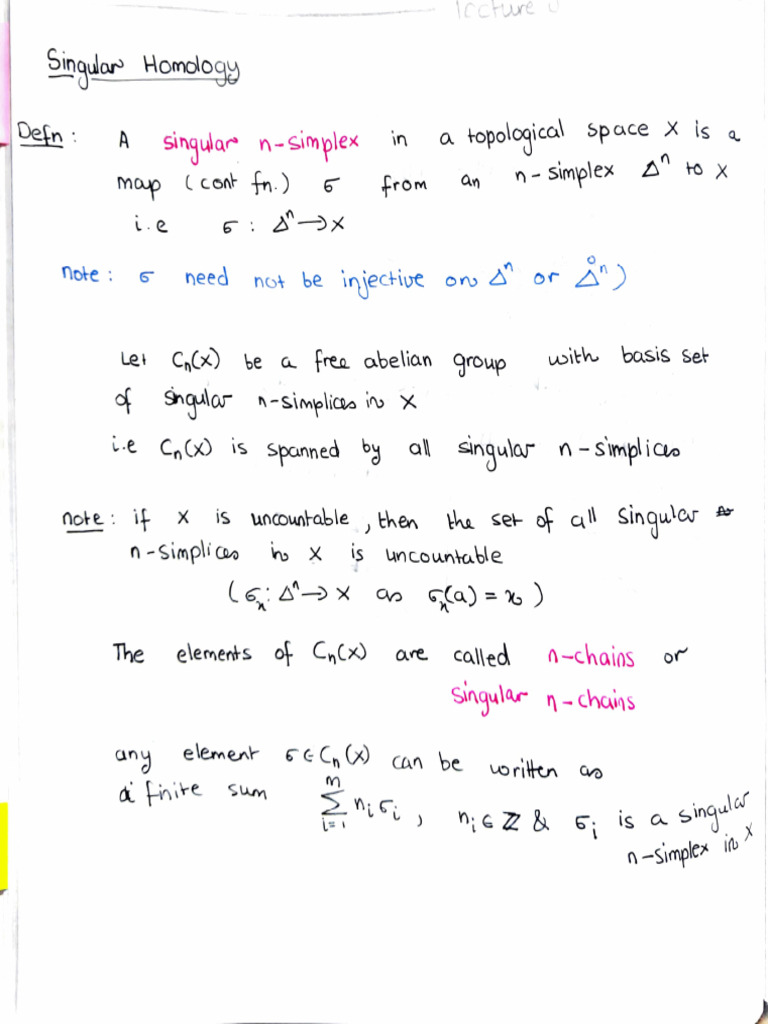 lecture
Singular Homology
Defn : A singular n-simplex in a topological space X is a
map (cont fn.) σ from an n-simplex Δⁿ to X
i.e σ : Δⁿ → X
note : σ need not be injective on Δⁿ or Δ̊ⁿ)
Let Cₙ(X) be a free abelian group with basis set
of singular n-simplices in X
i.e Cₙ(X) is spanned by all singular n-simplices
note : if X is uncountable, then the set of all singular
n-simplices in X is uncountable
(σₓ : Δⁿ → X as σₓ(a) = x)
The elements of Cₙ(X) are called n-chains or
singular n-chains
any element σ ∈ Cₙ(X) can be written as
a finite sum \sum_{i=1}^{m} nᵢσᵢ , nᵢ ∈ ℤ & σᵢ is a singular
n-simplex in X